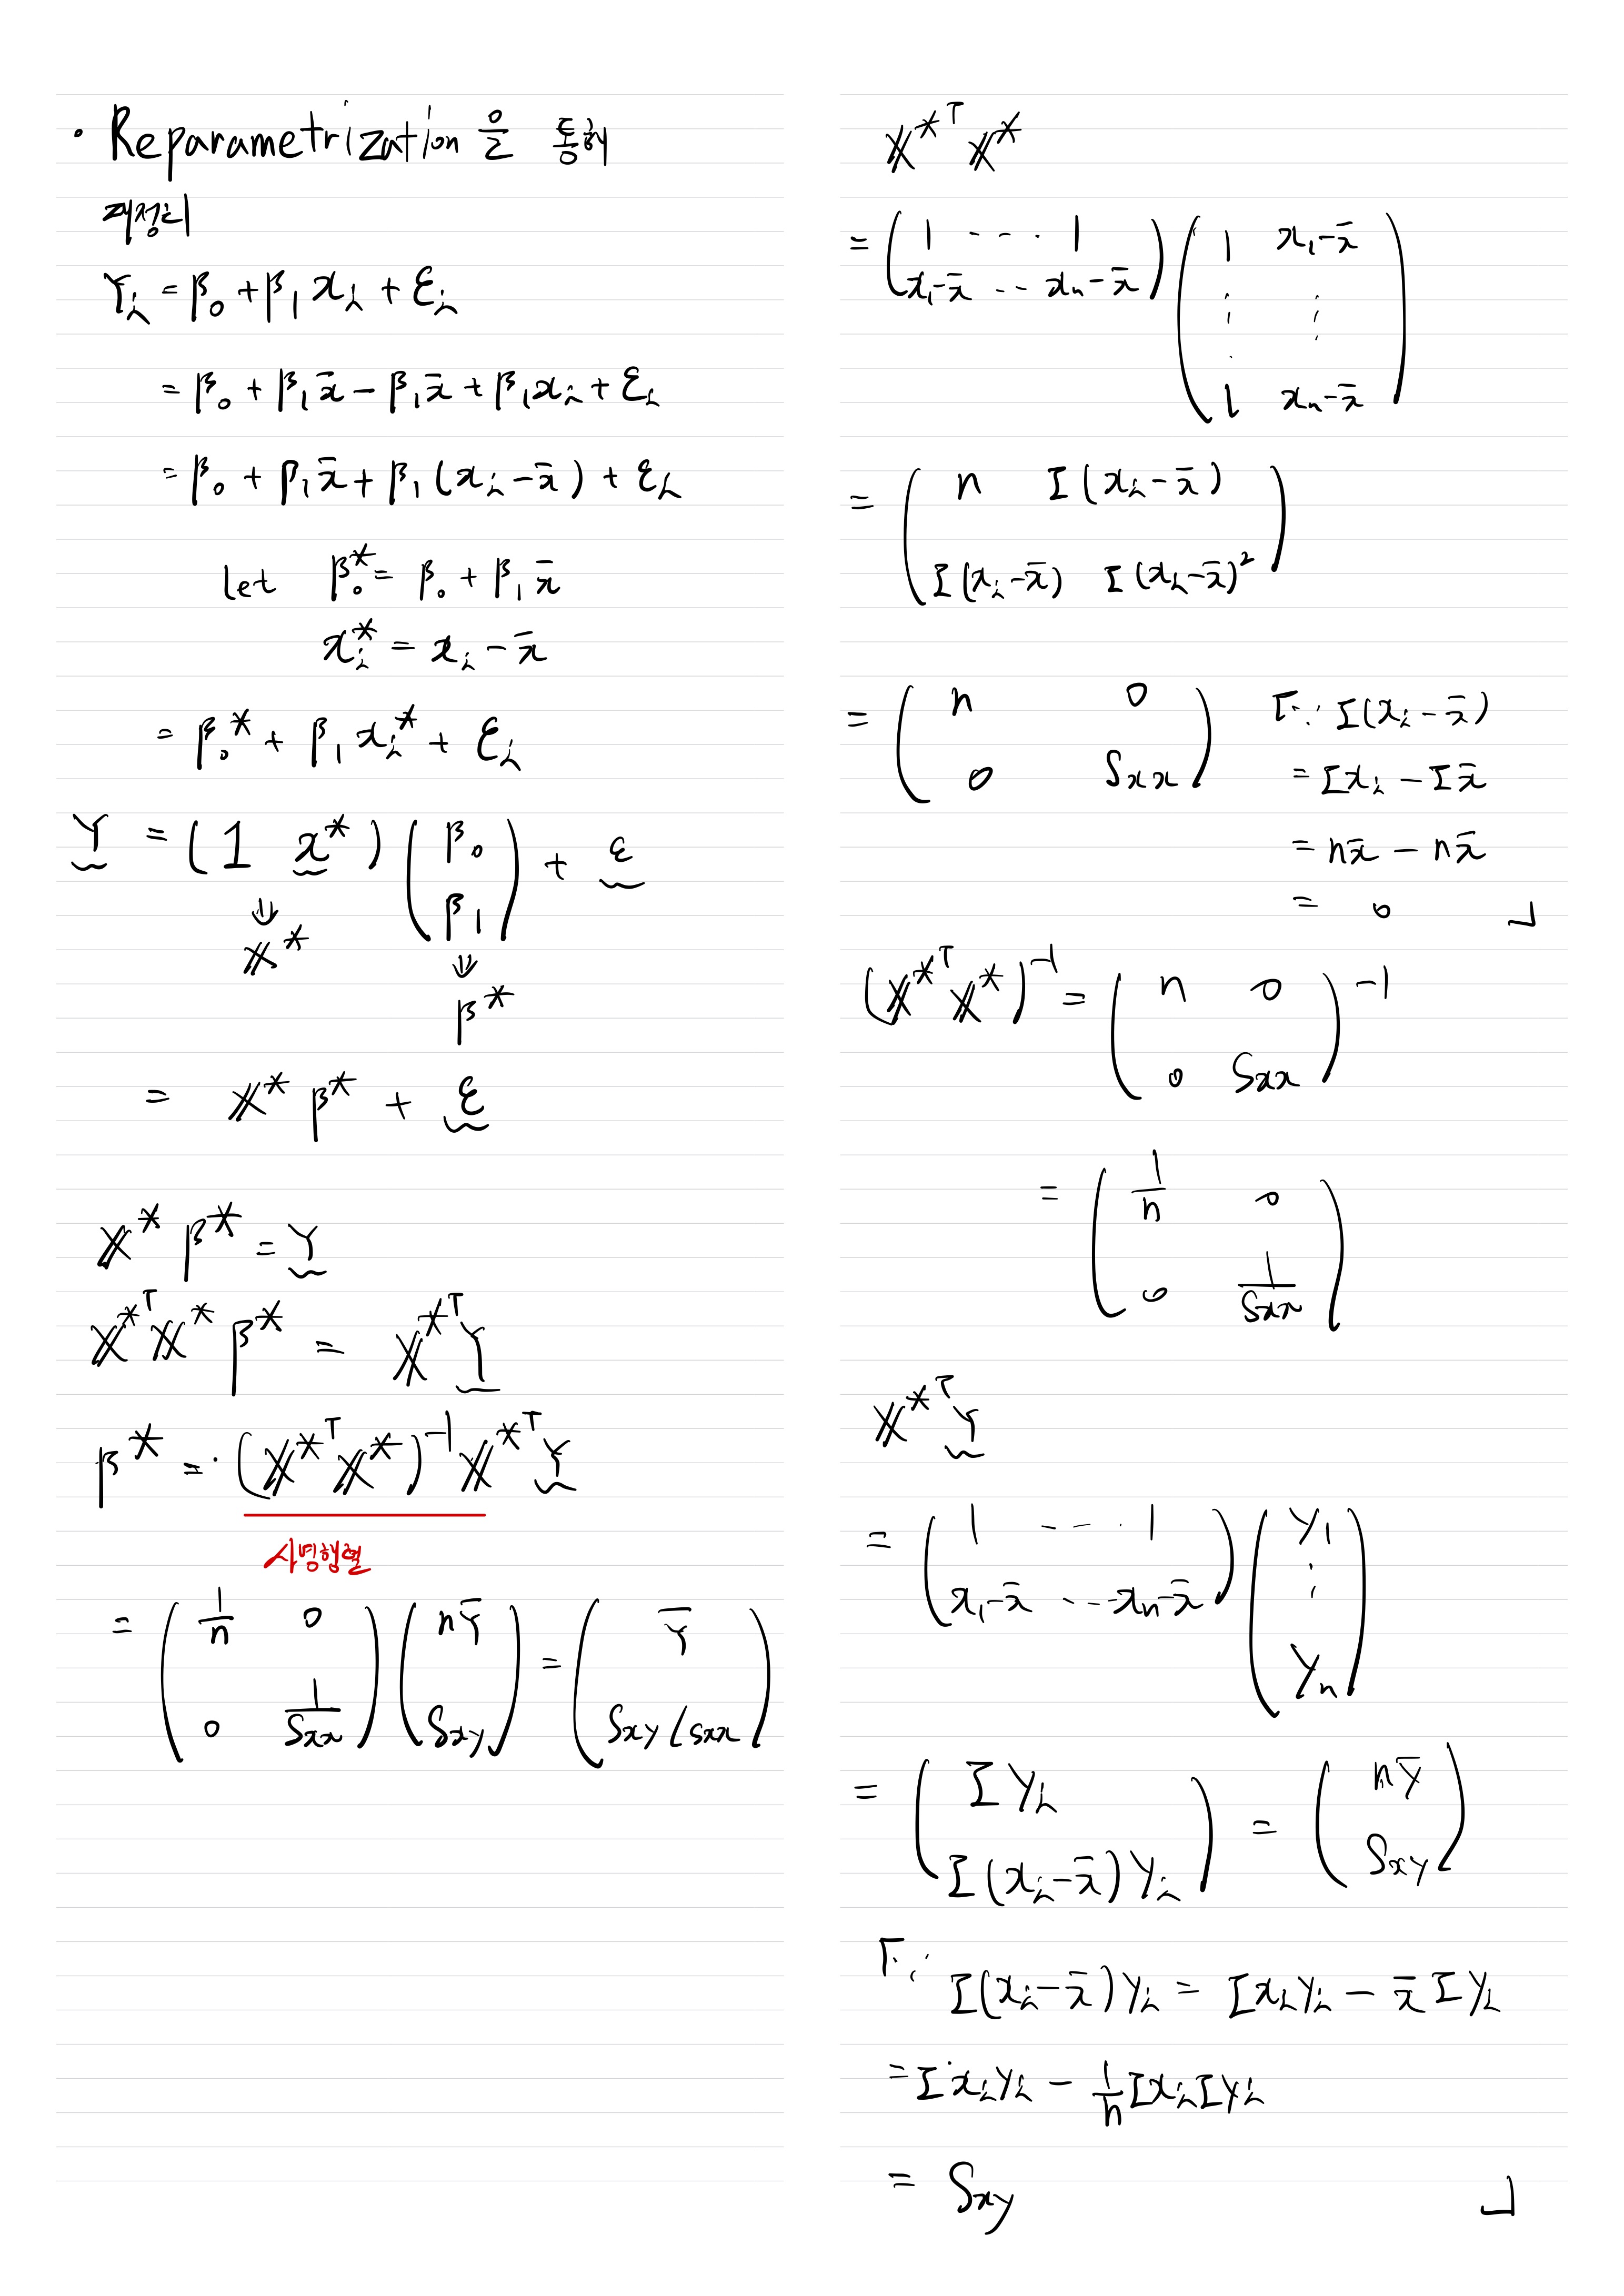 · Reparametrization을 통해
재정의
Yᵢ = β₀ + β₁xᵢ + εᵢ
= β₀ + β₁x̄ − β₁x̄ + β₁xᵢ + εᵢ
= β₀ + β₁x̄ + β₁(xᵢ − x̄) + εᵢ
let β₀* = β₀ + β₁x̄
xᵢ* = xᵢ − x̄
= β₀* + β₁xᵢ* + εᵢ
Y = (1 x*) (β₀ β₁) + ε
⇓ 𝕏*
⇓ β*
= 𝕏* β* + ε
𝕏* β* = Y
𝕏*ᵀ𝕏* β* = 𝕏*ᵀY
β* = (𝕏*ᵀ𝕏*)⁻¹𝕏*ᵀY
사영행렬
= (1/n 0 ; 0 1/Sxx) (nȲ ; Sxy) = (Ȳ ; Sxy/Sxx)
𝕏*ᵀ𝕏*
= (1 ··· 1 ; x₁−x̄ ··· xₙ−x̄) (1 x₁−x̄ ; ⋮ ⋮ ; 1 xₙ−x̄)
= (n Σ(xᵢ−x̄) ; Σ(xᵢ−x̄) Σ(xᵢ−x̄)²)
= (n 0 ; 0 Sxx) ┌∵ Σ(xᵢ−x̄)
= Σxᵢ − Σx̄
= nx̄ − nx̄
= 0 ┘
(𝕏*ᵀ𝕏*)⁻¹ = (n 0 ; 0 Sxx)⁻¹
= (1/n 0 ; 0 1/Sxx)
𝕏*ᵀY
= (1 ··· 1 ; x₁−x̄ ··· xₙ−x̄) (y₁ ; ⋮ ; yₙ)
= (Σyᵢ ; Σ(xᵢ−x̄)yᵢ) = (nȳ ; Sxy)
┌∵ Σ(xᵢ−x̄)yᵢ = Σxᵢyᵢ − x̄Σyᵢ
= Σxᵢyᵢ − 1/n ΣxᵢΣyᵢ
= Sxy ┘